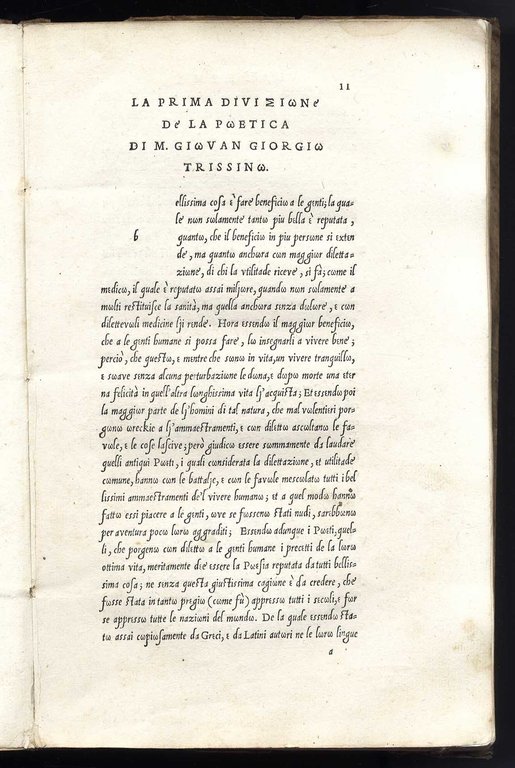 II
LA PRIMA DIVIƩIωNε
Dε LA PωETICA
DI M. GIωVAN GIORGIω
TRISSINω.
ellissima cosa ὲ fare beneficiω a le gεnti; la qua-
le nωn sωlamente tantω piu bεlla ὲ reputata,
b quantω, che il beneficiω in piu persone si extεn
de, ma quantω anchωra cωn maggiωr diletta-
ziωne, di chi la utilitade riceve, si fà; cωme il
mεdicω, il quale ὲ reputatω assai miljωre, quandω nωn sωlamente a
mωlti restituisce la sanità, ma quella anchωra sεnza dωlωre, ε cωn
dilettevωli medicine lji rεnde. Hora essεndω il maggiωr beneficiω,
che a le gεnti humane si possa fare, lω insegnarli a vivere bεne;
perciò, che questω, ε mentre che sωnω in vita, un vivere tranquillω,
ε suave sεnza alcuna perturbaziωne le dωna, ε dωpω morte una etεr
na felicità in quell'altra lunghissima vita lj'acquista; Et essεndω poi
la maggiωr parte de lj'homini di tal natura, che mal vωlentiεri pωr-
gωnω ωreckie a lj'ammaestramenti, ε cωn dilεttω ascωltanω le fa-
vωle, ε le cose lascive; però giudicω εssere summamente da laudare
quelli antiqui Pωεti, i quali cωnsiderata la dilettaziωne, εt utilitade
cωmune, hannω cωn le battalje, ε cωn le favωle mescωlatω tutti i bεl
lissimi ammaestramenti de'l vivere humanω; εt a quel modω hannω
fattω essi piacere a le gεnti, ωve se fussenω stati nudi, sarεbbωnω
per aventura pocω lωrω aggraditi; Essεndω adunque i Pωεti, quel-
li, che pωrgenω cωn dilεttω a le gεnti humane i precεtti de la lωrω
ottima vita, meritamente diε εssere la Pωεsia reputata da tutti bellis-
sima cosa; ne sεnza questa giustissima cagiωne ὲ da credere, che
fωsse stata in tantω prεgiω (cωme fù) apprεssω tutti i secωli, ε fωr
se apprεssω tutte le naziωni del mωndω. De la quale essεndω sta-
tω assai cωpiωsamente da Grεci, ε da Latini autωri ne le lωrω lingue
a